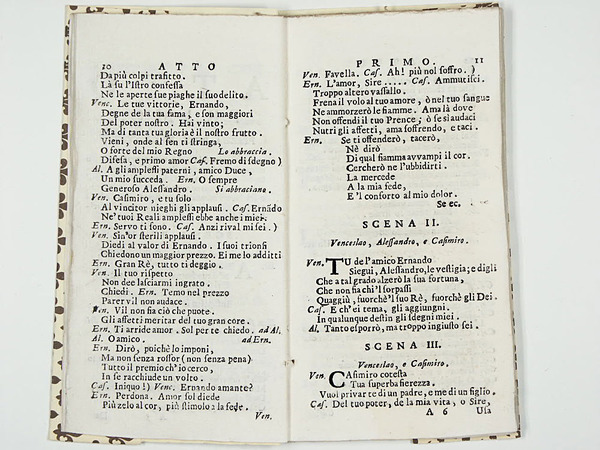 10 ATTO
Da più colpi trafitto.
Là su l'Istro confessa
Ne le aperte sue piaghe il suo delito.
Venc. Le tue vittorie, Ernando,
Degne de la tua fama, e son maggiori
Del poter nostro. Hai vinto;
Ma di tanta tua gloria è il nostro frutto.
Vieni, onde al sen ti stringa,
O forte del mio Regno Lo abbraccia.
Difesa, e primo amor Cas. Fremo di sdegno)
Al. A gli amplessi paterni, amico Duce,
Un mio succeda. Ern. O sempre
Generoso Alessandro. Si abbraciano.
Ven. Casimiro, e tu solo
Al vincitor nieghi gli applausi. Cas. Ernādo
Ne' tuoi Reali amplessi ebbe anche i miei.
Ern. Servo ti sono. Cas. Anzi rival mi sei.)
Ven. Sin'or sterili applausi.
Diedi al valor di Ernando. I suoi trionfi
Chiedono un maggior prezzo. Ei me lo additti
Ern. Gran Rè, tutto ti deggio.
Ven. Il tuo rispetto
Non dee lasciarmi ingrato.
Chiedi. Ern. Temo nel prezzo
Parer vil non audace.
Ven. Vil non fia ciò che puote.
Gli affetti meritar del tuo gran core.
Ern. Ti arride amor. Sol per te chiedo. ad Al.
Al. O amico. ad Ern.
Ern. Dirò, poichè lo imponi,
Ma non senza rossor (non senza pena)
Tutto il premio ch'io cerco,
In se racchiude un volto.
Cas. Iniquo!) Venc. Ernando amante?
Ern. Perdona. Amor sol diede
Più zelo al cor, più stimolo a la fede.
Ven.
PRIMO. 11
Ven. Favella. Cas. Ah! più nol soffro.)
Ern. L'amor, Sire ..... Cas. Ammutisci.
Troppo altero vassallo.
Frena il volo al tuo amore, ò nel tuo sangue
Ne ammorzerò le fiamme. Ama là dove
Non offendi il tuo Prence; ò se si audaci
Nutri gli affetti, ama soffrendo, e taci.
Ern. Se ti offenderò, tacerò,
Nè dirò
Di qual fiamma avvampi il cor.
Cercherò ne l'ubbidirti.
La mercede
A la mia fede,
E 'l conforto al mio dolor.
Se ec.
SCENA II.
Venceslao, Alessandro, e Casimiro.
Ven. TU de l'amico Ernando
Siegui, Alessandro, le vestigia; e digli
Che a tal grado alzerò la sua fortuna,
Che non fia chi'l sorpassi
Quaggiù, fuorchè'l suo Rè, fuorchè gli Dei.
Cas. E ch'ei tema, gli aggiungni.
In qualunque destin gli sdegni miei.
Al. Tanto esporrò, ma troppo ingiusto sei.
SCENA III.
Venceslao, e Casimiro.
Ven. CAsimiro cotesta
Tua superba fierezza.
Vuoi privarte di un padre, e me di un figlio.
Cas. Del tuo poter, de la mia vita, o Sire,
A 6 Usa